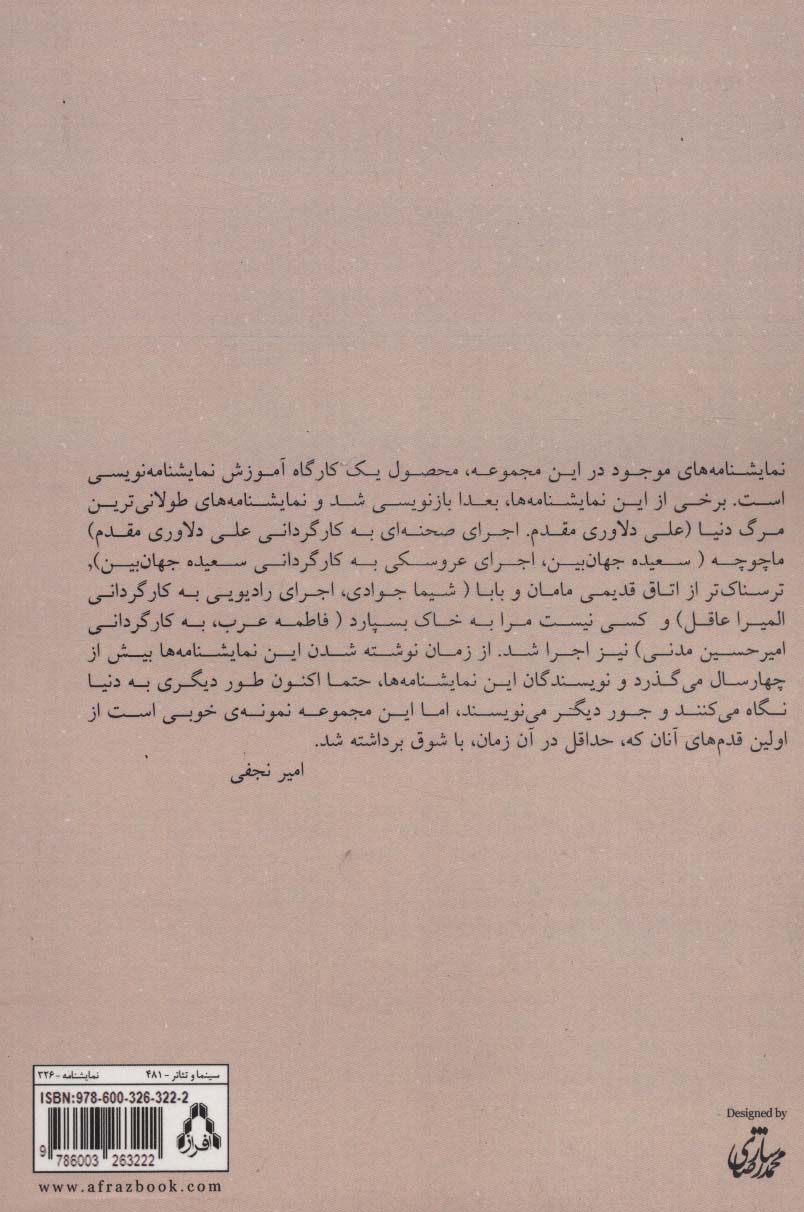 نمایشنامه‌های موجود در این مجموعه، محصول یک کارگاه آموزش نمایشنامه‌نویسی
است. برخی از این نمایشنامه‌ها، بعدا بازنویسی شد و نمایشنامه‌های طولانی‌ترین
مرگ دنیا (علی دلاوری مقدم. اجرای صحنه‌ای به کارگردانی علی دلاوری مقدم)
ماچوچه ( سعیده جهان‌بین، اجرای عروسکی به کارگردانی سعیده جهان‌بین),
ترسناک‌تر از اتاق قدیمی مامان و بابا ( شیما جوادی، اجرای رادیویی به کارگردانی
المیرا عاقل) و کسی نیست مرا به خاک بسپارد ( فاطمه عرب، به کارگردانی
امیرحسین مدنی) نیز اجرا شد. از زمان نوشته شدن این نمایشنامه‌ها بیش از
چهارسال می‌گذرد و نویسندگان این نمایشنامه‌ها، حتما اکنون طور دیگری به دنیا
نگاه می‌کنند و جور دیگر می‌نویسند، اما این مجموعه نمونه‌ی خوبی است از
اولین قدم‌های آنان که، حداقل در آن زمان، با شوق برداشته شد.
امیر نجفی
سینما و تئاتر - ۴۸۱ نمایشنامه - ۳۲۶
ISBN:978-600-326-322-2
افراز
9 786003 263222
www.afrazbook.com
Designed by